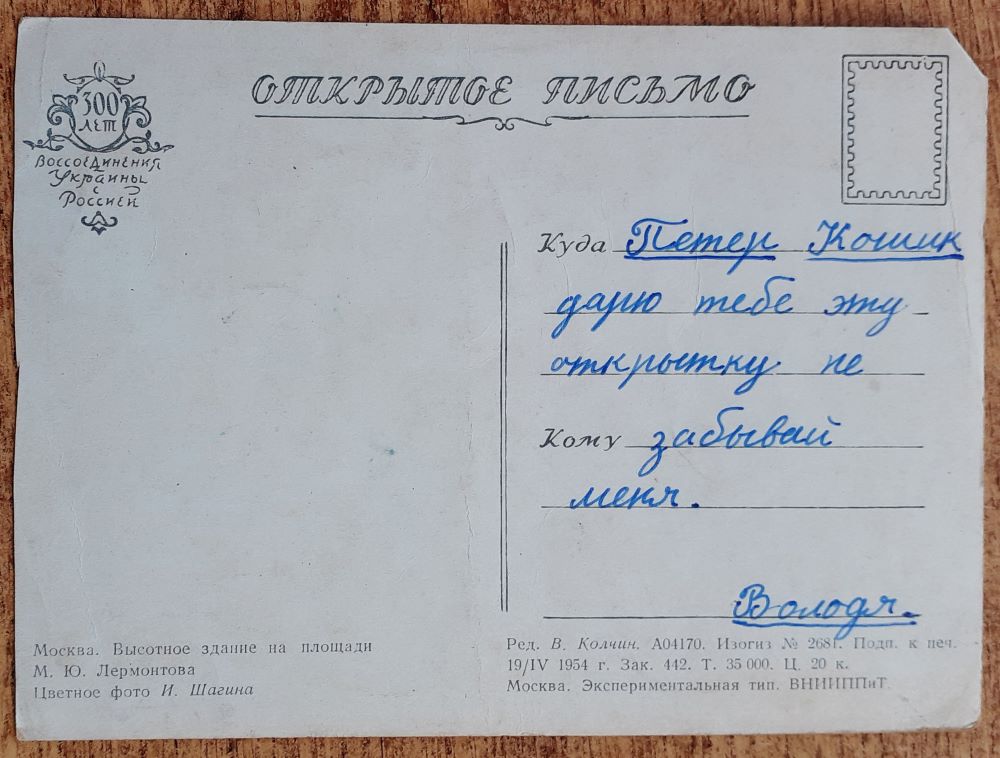 300
ЛЕТ
Воссоединения
Украины
с
Россией
ОТКРЫТОЕ ПИСЬМО
Куда Петер Кошик
дарю тебе эту
открытку не
Кому забывай
меня.
Володя.
Москва. Высотное здание на площади
М. Ю. Лермонтова
Цветное фото И. Шагина
Ред. В. Колчин. А04170. Изогиз № 2681. Подп. к печ.
19/IV 1954 г. Зак. 442. Т. 35 000. Ц. 20 к.
Москва. Экспериментальная тип. ВНИИППиТ